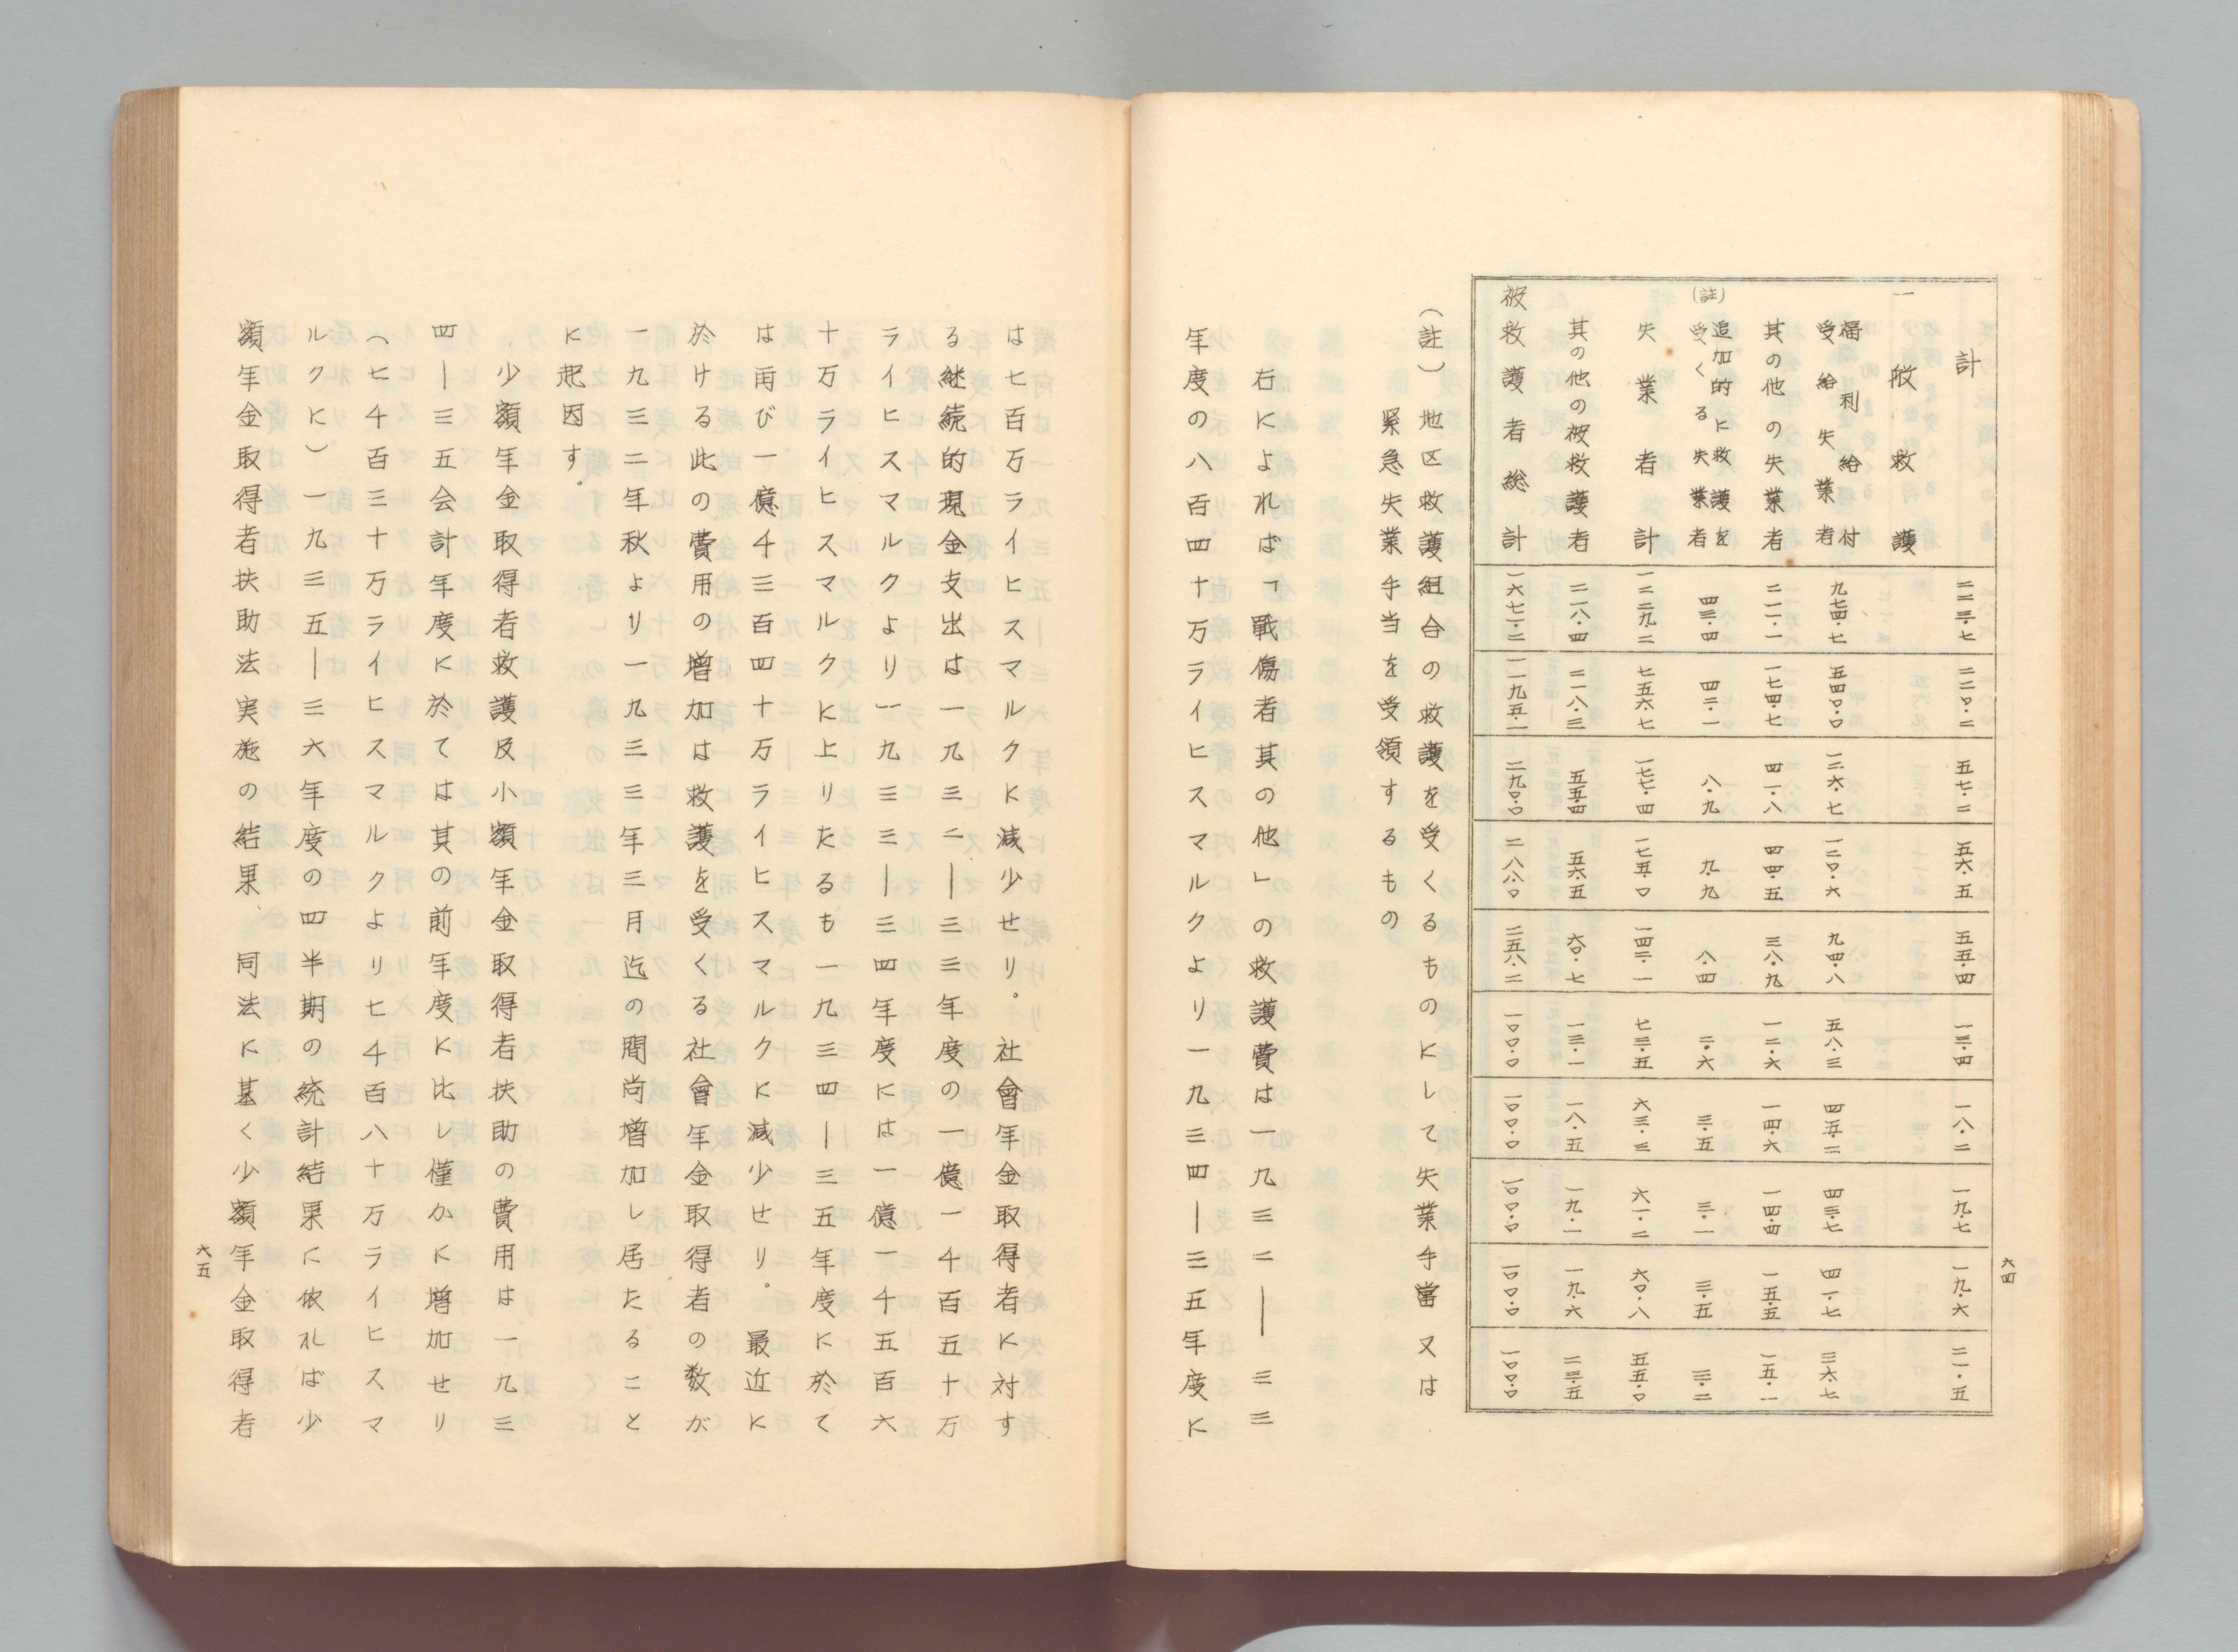 計 二二三・七 二二〇・二 五七・二 五六・五 五五・四 一三・四 一八・二 一九・七 一九・六 二一・五
一般救護
福利給付
受給失業者 九七四・七 五四〇・〇 一二六・七 一二〇・六 九四・八 五八・三 四五・二 四三・七 四一・七 三六・七
其の他の失業者 二一一・一 一七四・七 四一・八 四四・五 三八・九 一二・六 一四・六 一四・四 一五・五 一五・一
(註)
追加的に救護を
受くる失業者 四三・四 四二・一 八・九 九・九 八・四 二・六 三・五 三・一 三・五 三・二
失業者計 一二二九・二 七五六・七 一七七・四 一七五・〇 一四二・一 七三・五 六三・三 六一・二 六〇・八 五五・〇
其の他の被救護者 二一八・四 二一八・三 五五・四 五六・五 六〇・七 一三・一 一八・五 一九・一 一九・六 二三・五
被救護者総計 一六七一・二 一一九五・一 二九〇・〇 二八八・〇 二五八・二 一〇〇・〇 一〇〇・〇 一〇〇・〇 一〇〇・〇 一〇〇・〇
(註) 地区救護組合の救護を受くるものにして失業手當又は
緊急失業手当を受領するもの
右によれば「戰傷者其の他」の救護費は一九三二―三三
年度の八百四十万ライヒスマルクより一九三四―三五年度に
六四
は七百万ライヒスマルクに減少せり。社會年金取得者に対す
る継続的現金支出は一九三二―三三年度の一億一千百五十万
ライヒスマルクより一九三三―三四年度には一億一千五百六
十万ライヒスマルクに上りたるも一九三四―三五年度に於て
は再び一億千三百四十万ライヒスマルクに減少せり。最近に
於ける此の費用の増加は救護を受くる社會年金取得者の数が
一九三二年秋より一九三三年三月迄の間尚増加し居たること
に起因す。
少額年金取得者救護及小額年金取得者扶助の費用は一九三
四―三五会計年度に於ては其の前年度に比し僅かに増加せり
(七千百三十万ライヒスマルクより七千百八十万ライヒスマ
ルクに)一九三五―三六年度の四半期の統計結果に依れば少
額年金取得者扶助法実施の結果、同法に基く少額年金取得者
六五